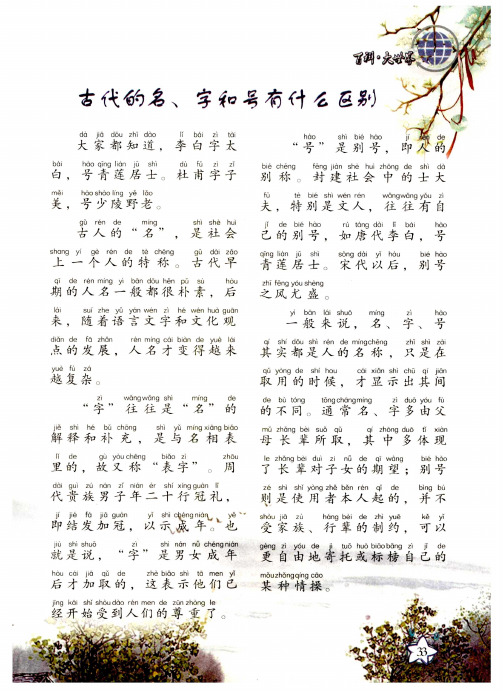 百科·大世界
古代的名、字和号有什么区别
dà jiā dōu zhī dào lǐ bái zì tài
大家都知道，李白字太
bái hào qīng lián jū shì dù fǔ zì zǐ
白，号青莲居士。杜甫字子
měi hào shào líng yě lǎo
美，号少陵野老。
gǔ rén de míng shì shè huì
古人的“名”，是社会
shang yí gè rén de tè chēng gǔ dài zǎo
上一个人的特称。古代早
qī de rén míng yì bān dōu hěn pǔ sù hòu
期的人名一般都很朴素，后
lái suí zhe yǔ yán wén zì hé wén huà guān
来，随着语言文字和文化观
diǎn de fā zhǎn rén míng cái biàn de yuè lái
点的发展，人名才变得越来
yuè fù zá
越复杂。
zì wǎng wǎng shì míng de
“字”往往是“名”的
jiě shì hé bǔ chōng shì yǔ míng xiāng biǎo
解释和补充，是与名相表
lǐ de gù yòu chēng biǎo zì zhōu
里的，故又称“表字”。周
dài guì zú nán zǐ nián èr shí xíng guàn lǐ
代贵族男子年二十行冠礼，
jí jié fà jiā guàn yǐ shì chéng nián yě
即结发加冠，以示成年。也
jiù shì shuō zì shì nán nǚ chéng nián
就是说，“字”是男女成年
hòu cái jiā qǔ de zhè biǎo shì tā men yǐ
后才加取的，这表示他们已
jīng kāi shǐ shòu dào rén men de zūn zhòng le
经开始受到人们的尊重了。
hào shì bié hào jí rén de
“号”是别号，即人的
bié chēng fēng jiàn shè huì zhōng de shì dà
别称。封建社会中的士大
fū tè bié shì wén rén wǎng wǎng yǒu zì
夫，特别是文人，往往有自
jǐ de bié hào rú táng dài lǐ bái hào
己的别号，如唐代李白，号
qīng lián jū shì sòng dài yǐ hòu bié hào
青莲居士。宋代以后，别号
zhī fēng yóu shèng
之风尤盛。
yì bān lái shuō míng zì hào
一般来说，名、字、号
qí shí dōu shì rén de míng chēng zhǐ shì zài
其实都是人的名称，只是在
qǔ yòng de shí hou cái xiǎn shì chū qí jiān
取用的时候，才显示出其间
de bù tóng tōng cháng míng zì duō yóu fù
的不同。通常名、字多由父
mǔ zhǎng bèi suǒ qǔ qí zhōng duō tǐ xiàn
母长辈所取，其中多体现
le zhǎng bèi duì zǐ nǚ de qī wàng bié hào
了长辈对子女的期望；别号
zé shì shǐ yòng zhě běn rén qǐ de bìng bù
则是使用者本人起的，并不
shòu jiā zú háng bèi de zhì yuē kě yǐ
受家族、行辈的制约，可以
gèng zì yóu de jì tuō huò biāo bǎng zì jǐ de
更自由地寄托或标榜自己的
mǒu zhǒng qíng cāo
某种情操。
33